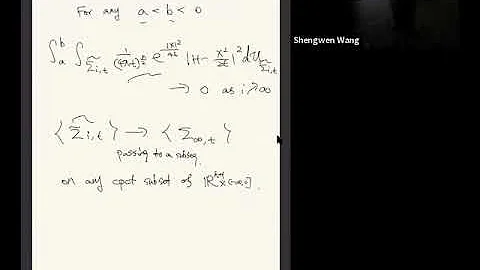 For any a < b < 0
∫_a^b ∫_{Σ̃_{i,t}} 1/(4πt)^{n/2} e^{|x|²/4t} |H - x^⊥/2t|² dμ_{Σ̃_{i,t}}
→ 0 as i ↗ ∞
{Σ̃_{i,t}} → {Σ_{∞,t}}
passing to a subseq.
on any cpct subset of
Shengwen Wang